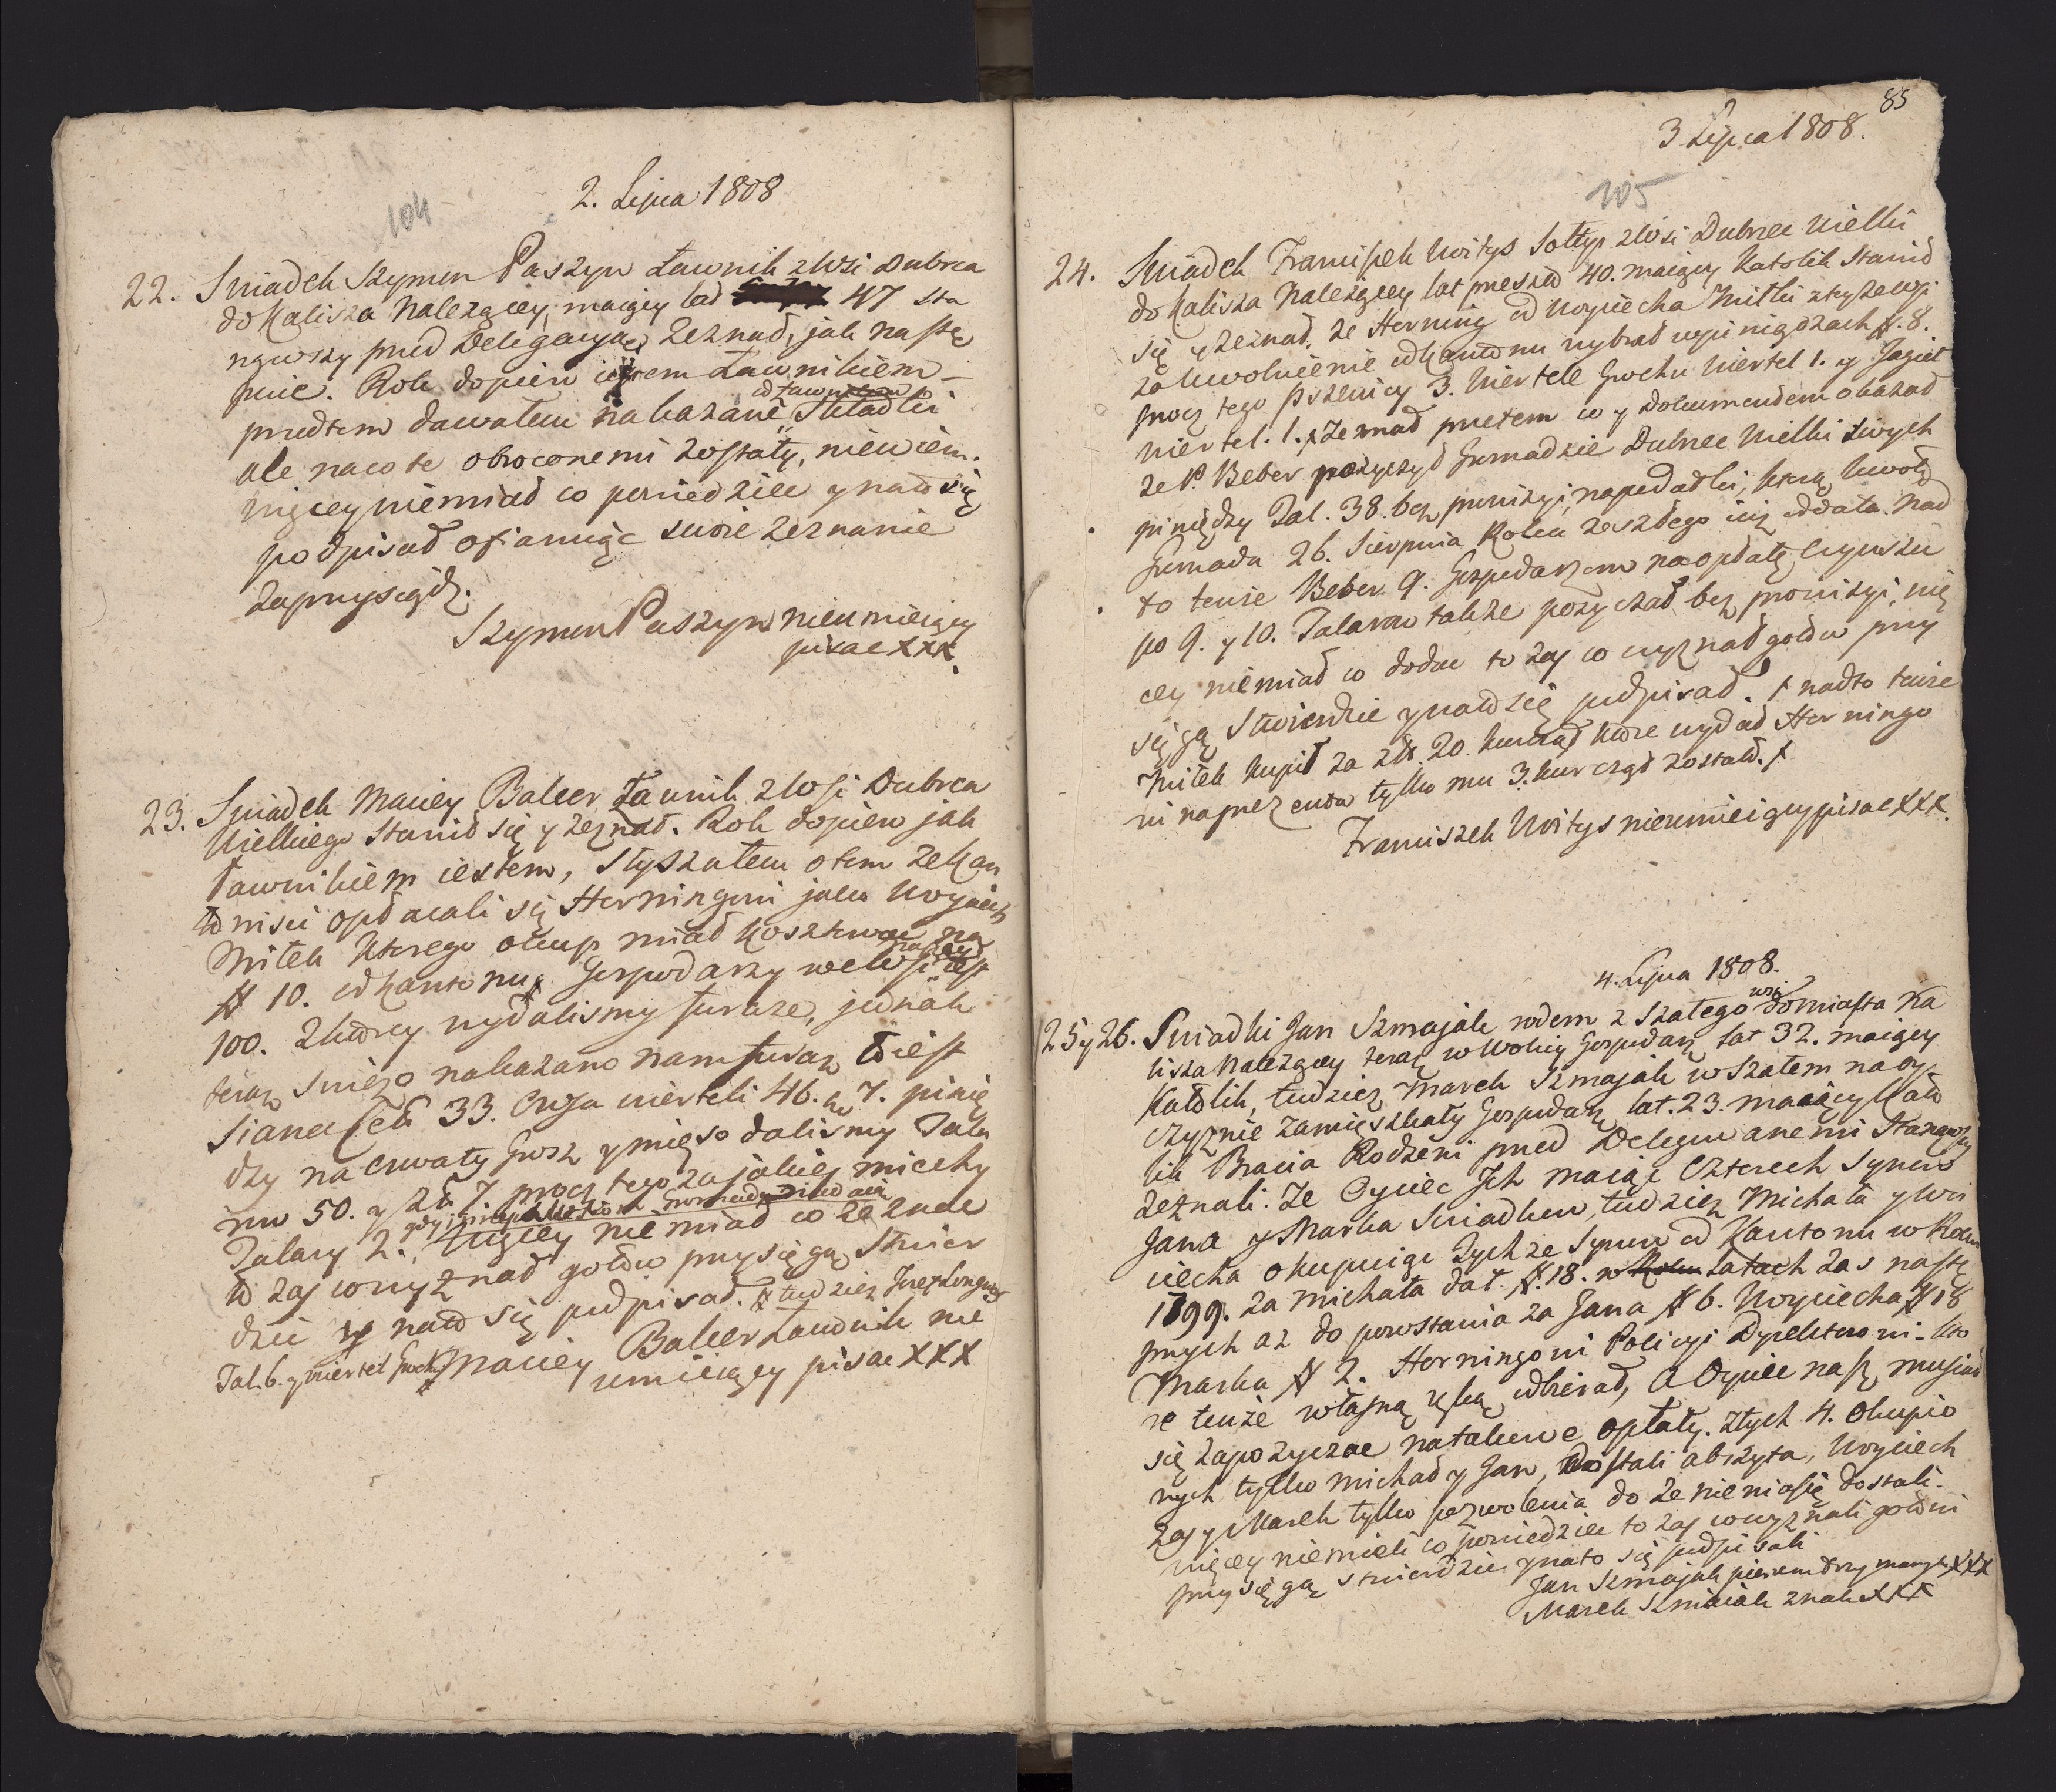 104
2. Lipca 1808
22. Swiadek Szymon Paszyn Ławnik z Wsi Dubrca
do Kalisza Należący, maiący lat 47 sta
nąwszy przed Delegacyą, Zeznał, jak nastę
puie. Rok dopiero iestem Ławnikiem –
przedtem dawałem nakazane Składki
ale na co te obrocone mi zostały, niewiem.
więcey niemiał co powiedziec y na to się
podpisał ofiaruiąc swoie zeznanie
zaprzysiądz.
Szymon Paszyn nieumieiący
pisac XXX.
23. Swiadek Maciey Balcer Ławnik z Wsi Dubrca
Wielkiego Stawił się y zeznał. Rok dopiero jak
Ławnikiem iestem, Słyszałem o tem że Kan
tonisci opłacali się Horningowi jako Woyciech
Mitek którego okup miał kosztowac
# 10. od kantonu, Gospodarzy we Wsi iest
100. z ktorey wydalismy furaże, jednak
teraz swiezo nakazano nam furaz to iest
Siana Cet. 33. Owsa wierteli 46. 7. pienię
dzy na Chwałę Grosz y mięso dalismy Tala
row 50. y Zł 7. procz tego za jakieś miechy
Talary 2. Więcey nie miał co zeznac
to zaś co wyznał gotow przysięgą stwier
dzic y na to się podpisał. # tudziez
Tal. 6. y wiertel Grochu # Maciey Balcer Ławnik nie
umieiący pisac XXX
85
3 Lipca 1808.
105
24. Swiadek Franciszek Woitys Sołtys z Wsi Dubrec Wielki
do Kalisza Należącey lat przeszło 40. maiący Katolik Stawił
się y zeznał, że Horning od Woyciecha Mitki z teyże wsi
za uwolnienie od kantonu wybrał w pieniądzach #. 8.
procz tego Pszenicy 3. Wiertele Grochu Wiertel 1. y Jagieł
Wiertel. 1. Zeznał przetem co y dokumentem okazał
że P. Beber pożyczył Gromadzie Dubrec Wielki swych
pieniędzy Tal. 38. bez prowizyi, na podatki, którą kwotę
Gromada 26. Sierpnia Roku zeszłego iuż oddała. Nad
to tenże Beber 9. Gospodarzom na opłatę czynszu
po 9. y 10. Talarow także pożyczał bez prowizyi, wię
cey niemiał co dodac to zaś co wyznał gotow przy
sięgą Stwierdzic y na to się podpisał. / nadto tenże
Mitek kupił za zł. 20. kurcząt które wydał Horningo
wi na prezenta tylko mu 3. kurcząt zostało. /
Franciszek Woitys nieumieiący pisac XXX.
4. Lipca 1808.
25 y 26. Swiadki Jan Szmajak rodem z Szałego wsi do miasta Ka
lisza Należącey teraz w Wolicy Gospodarz lat 32. maiący
Katolik, tudziez Marek Szmajak w Szałem na oy-
czyznie zamięszkały Gospodarz lat. 23. maiący Kato
lik Bracia Rodzeni przed Delegowanemi Stanąwszy
zeznali. Że Oyciec Ich maiąc Czterech Synow
Jana y Marka Swiadkow, tudziez Michała y Woi
ciecha okupuiąc Tychże Synow od Kantonu w Roku
1799. za Michała dał. #. 18. w Roku latach zas nastę
pnych az do powstania za Jana # 6. Woyciecha # 18
Marka # 2. Horningowi Policyi Dyrektorowi. kto
re tenże własną ręką odbierał, a Oyciec nasz musiał
się zapożyczac na takowe opłaty. z tych 4. Okupio
nych tylko Michał y Jan, dostali abszyta, Woyciech
zaś y Marek tylko pozwolenia do żenienia się dostali.
więcey niemieli co powiedziec to zaś co wyznali gotowi
przysięgą stwierdzic y na to się podpisali
Jan Szmajak XXX
Marek Szmaiak znak XXX